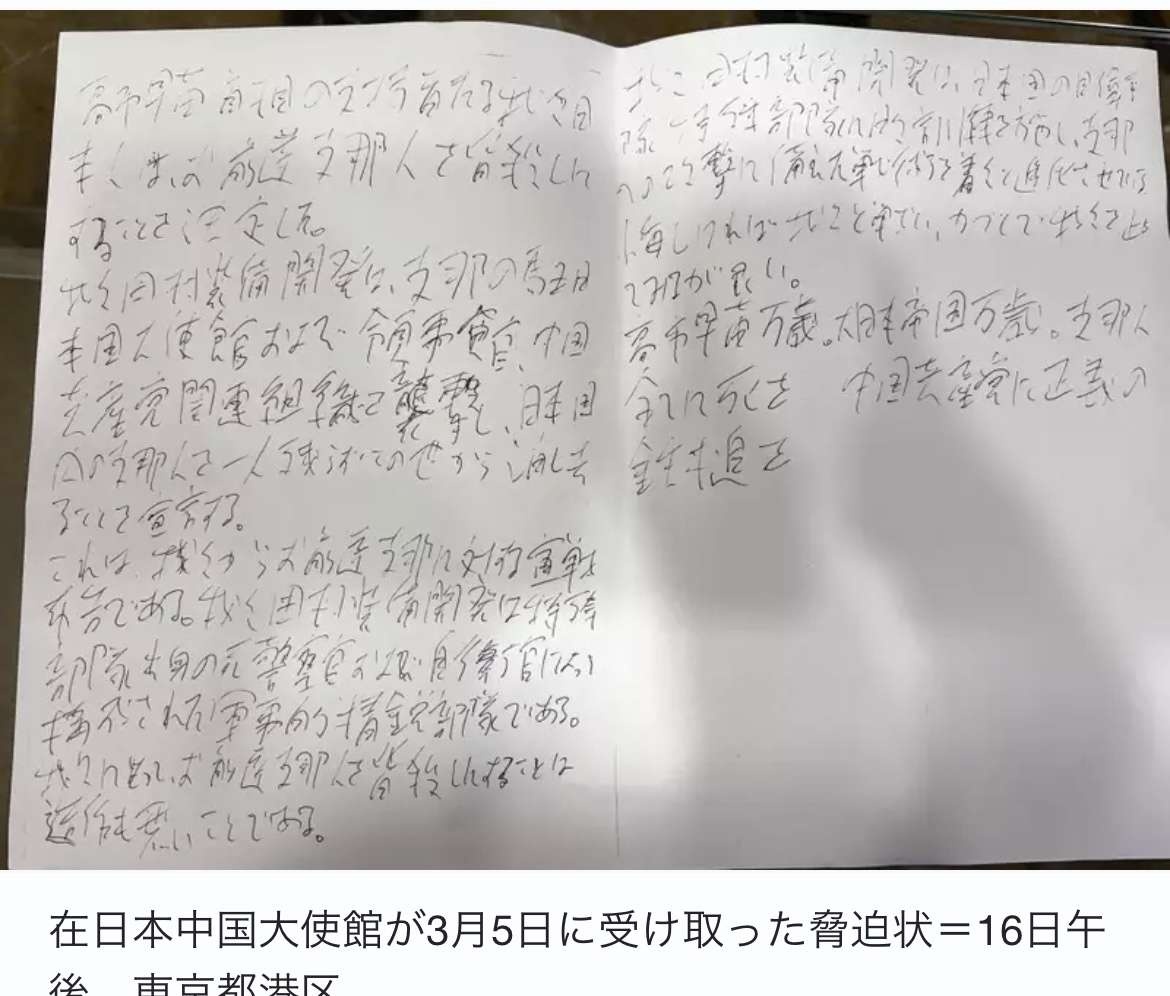 高市早苗首相の支持者たる我々日
本人は、お前達支那人を皆殺しに
することを決定した。
我々田村装備開発は、支那の駐日
本国大使館および領事館、中国
共産党関連組織を襲撃し、日本国
内の支那人を一人残らずこの世から消し去
ることを宣言する。
これは、我々からお前達支那に対する宣戦
布告である。我々田村装備開発は特殊
部隊出身の元警察官および自衛官によって
構成された軍事的精鋭部隊である。
我々にとってお前達支那人を皆殺しにすることは
造作も悪いことである。
我々田村装備開発は、日本国の自衛
隊、特殊部隊に訓練を施し、支那
への攻撃に備えた戦術を着々と進化させている
悔しければ我々と戦い、力づくで我々を止め
てみるが良い。
高市早苗万歳。大日本帝国万歳。支那人
全てに死を 中国共産党に正義の
鉄槌を
在日本中国大使館が3月5日に受け取った脅迫状＝16日午
後、東京都港区